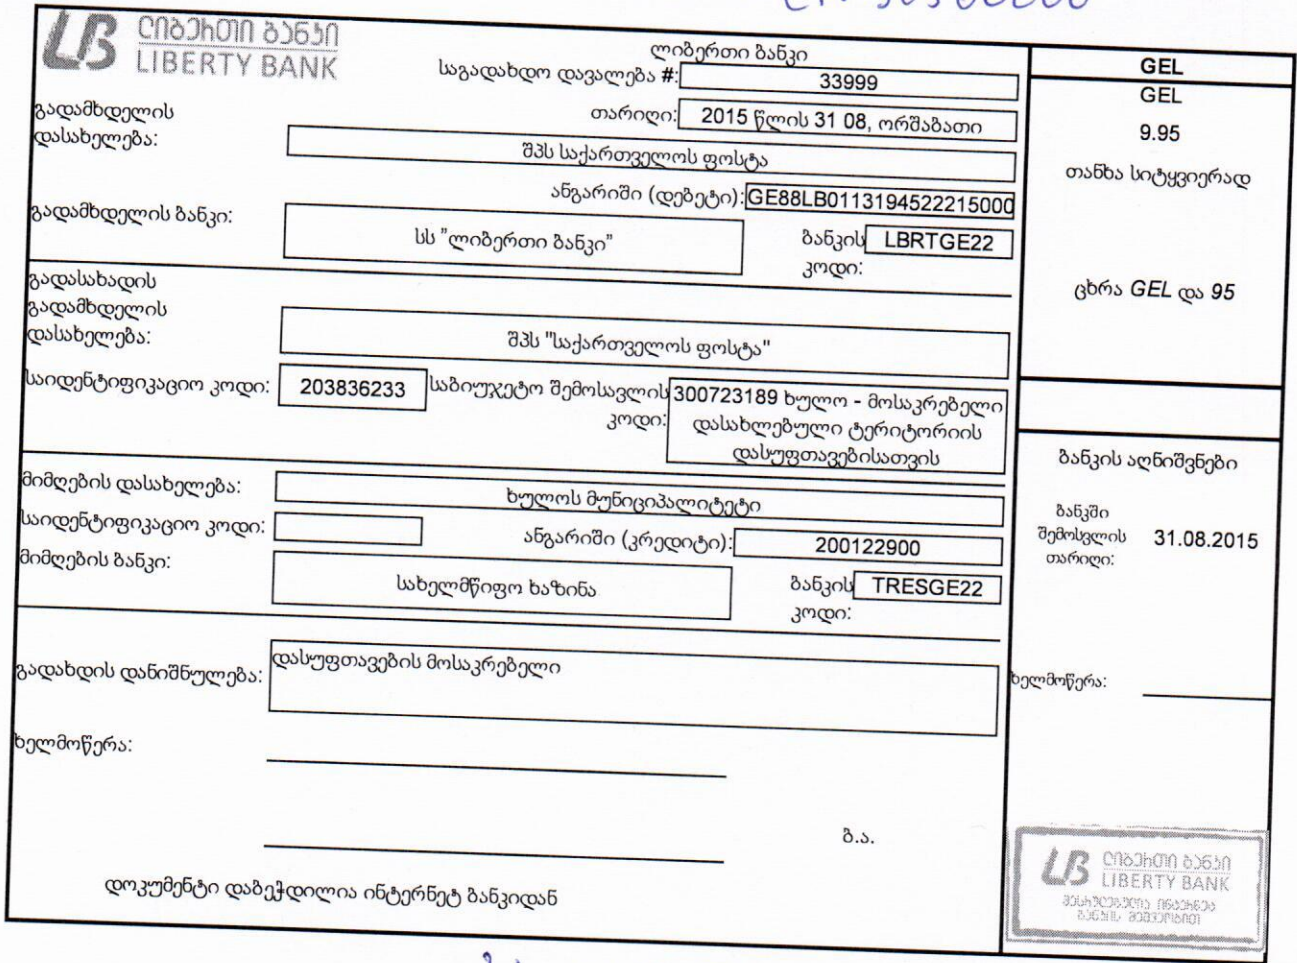 ლიბერთი ბანკი
LIBERTY BANK
ლიბერთი ბანკი
საგადახდო დავალება #: 33999
თარიღი: 2015 წლის 31 08, ორშაბათი
გადამხდელის
დასახელება: შპს საქართველოს ფოსტა
ანგარიში (დებეტი): GE88LB0113194522215000
გადამხდელის ბანკი: სს "ლიბერთი ბანკი" ბანკის LBRTGE22
კოდი:
გადასახადის
გადამხდელის
დასახელება: შპს "საქართველოს ფოსტა"
საიდენტიფიკაციო კოდი: 203836233 საბიუჯეტო შემოსავლის 300723189 ხულო - მოსაკრებელი
კოდი: დასახლებული ტერიტორიის
დასუფთავებისათვის
მიმღების დასახელება: ხულოს მუნიციპალიტეტი
საიდენტიფიკაციო კოდი: ანგარიში (კრედიტი): 200122900
მიმღების ბანკი: სახელმწიფო ხაზინა ბანკის TRESGE22
კოდი:
გადახდის დანიშნულება: დასუფთავების მოსაკრებელი
ხელმოწერა:
ბ.ა.
დოკუმენტი დაბეჭდილია ინტერნეტ ბანკიდან
GEL
GEL
9.95
თანხა სიტყვიერად
ცხრა GEL და 95
ბანკის აღნიშვნები
ბანკში
შემოსვლის 31.08.2015
თარიღი:
ხელმოწერა:
ლიბერთი ბანკი
LIBERTY BANK
შესრულებულია ინტერნეტ
ბანკის მეშვეობით